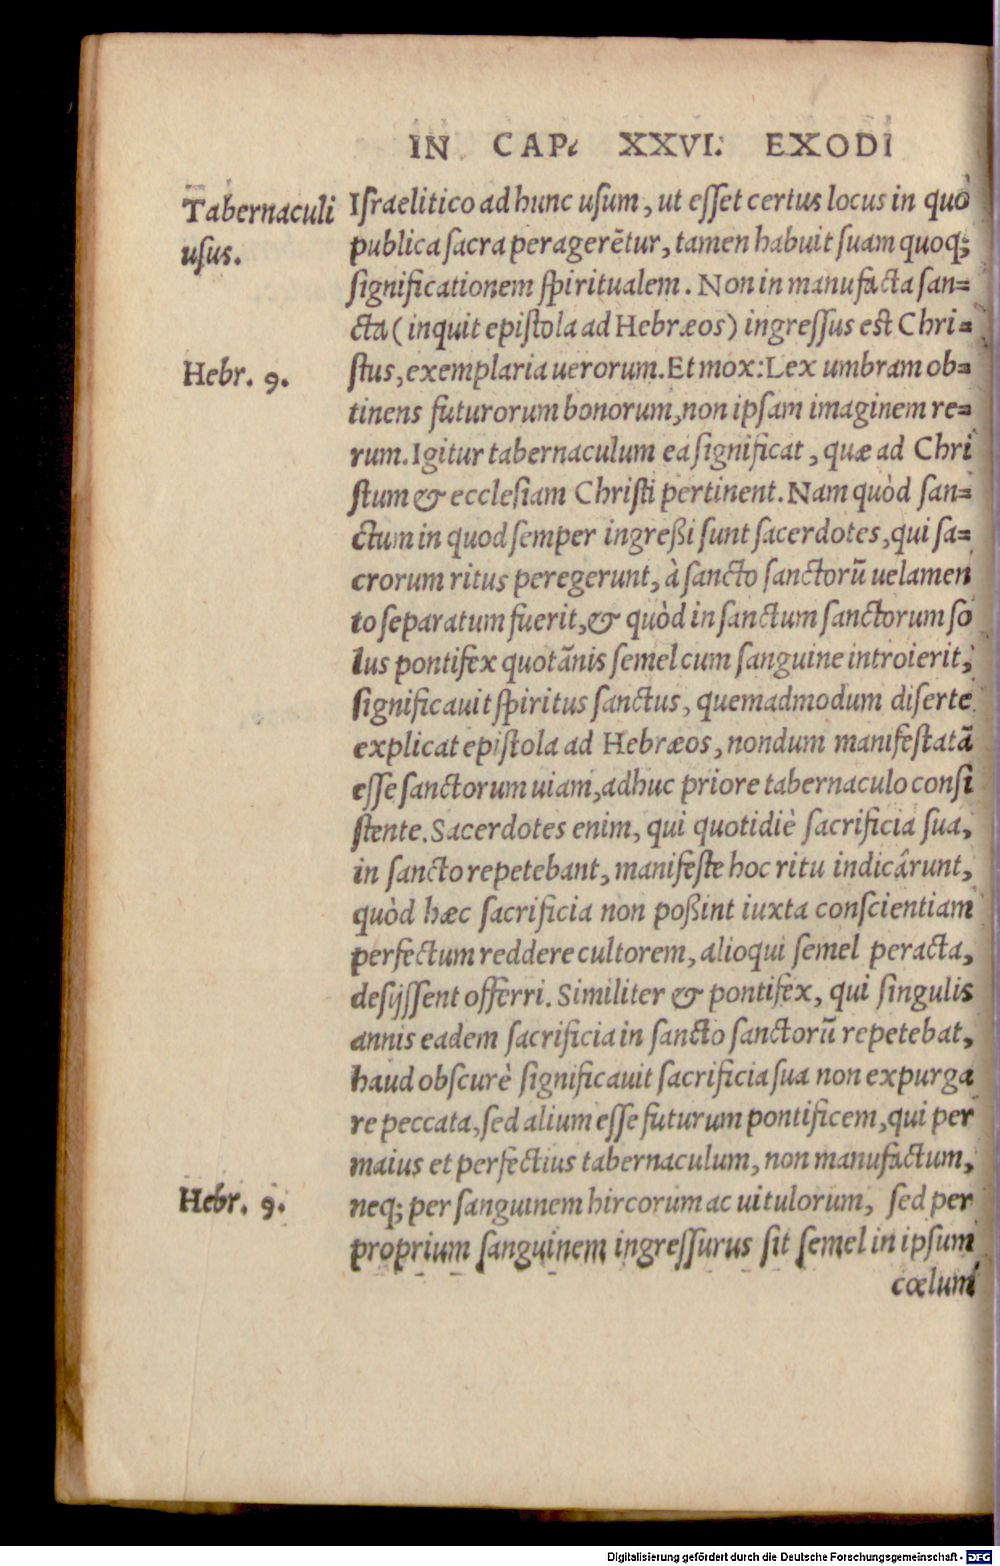 IN CAP. XXVI. EXODI
Tabernaculi
usus.
Israelitico ad hunc usum, ut esset certus locus in quò
publica sacra peragerẽtur, tamen habuit suam quoq;
significationem spiritualem. Non in manufacta san=
cta (inquit epistola ad Hebræos) ingressus est Chri=
Hebr. 9.
stus, exemplaria uerorum. Et mox: Lex umbram ob=
tinens futurorum bonorum, non ipsam imaginem re=
rum. Igitur tabernaculum ea significat, quæ ad Chri
stum & ecclesiam Christi pertinent. Nam quòd san=
ctum in quod semper ingreßi sunt sacerdotes, qui sa=
crorum ritus peregerunt, à sancto sanctorũ uelamen
to separatum fuerit, & quòd in sanctum sanctorum so
lus pontifex quotãnis semel cum sanguine introierit,
significauit spiritus sanctus, quemadmodum diserte
explicat epistola ad Hebræos, nondum manifestatã
esse sanctorum uiam, adhuc priore tabernaculo consi
stente. Sacerdotes enim, qui quotidiè sacrificia sua,
in sancto repetebant, manifeste hoc ritu indicârunt,
quòd hæc sacrificia non poßint iuxta conscientiam
perfectum reddere cultorem, alioqui semel peracta,
desijssent offerri. Similiter & pontifex, qui singulis
annis eadem sacrificia in sancto sanctorũ repetebat,
haud obscurè significauit sacrificia sua non expurga
re peccata, sed alium esse futurum pontificem, qui per
maius et perfectius tabernaculum, non manufactum,
Hebr. 9.
neq; per sanguinem hircorum ac uitulorum, sed per
proprium sanguinem ingressurus sit semel in ipsum
cœlum
Digitalisierung gefördert durch die Deutsche Forschungsgemeinschaft - DFG